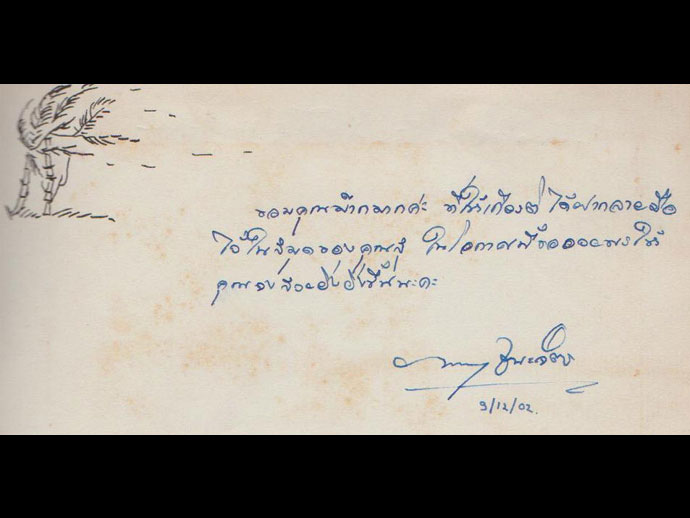 ขอบคุณมากมากค่ะ ที่ให้เกียรติ ได้ฝากลายมือ
ไว้ในสมุดของคุณ ในโอกาสนี้ขอ ให้
คุณจง ยิ่งขึ้นนะคะ
9/12/02.